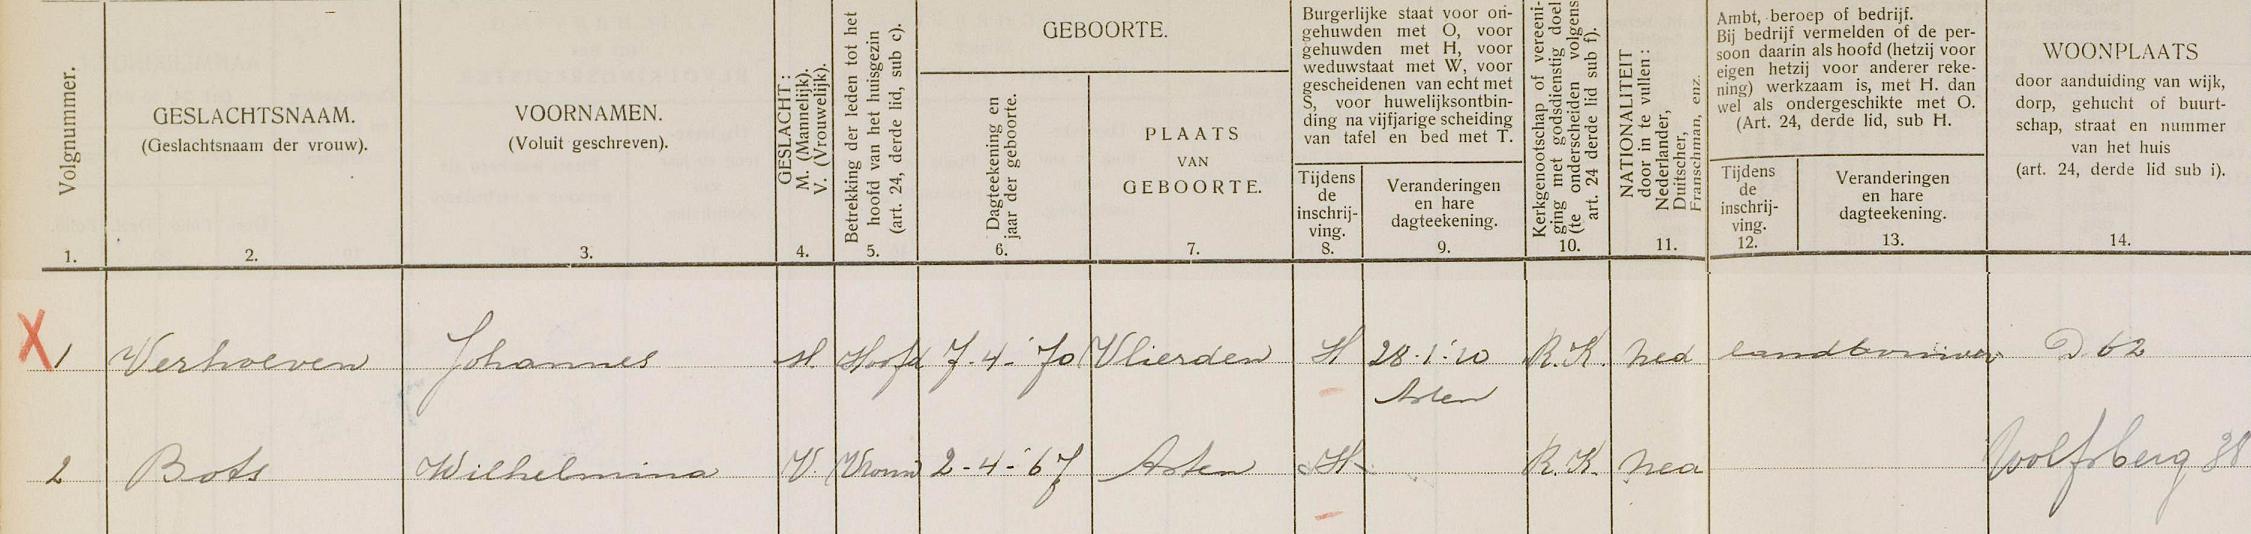 Volgnummer.
1.
GESLACHTSNAAM.
(Geslachtsnaam der vrouw).
2.
VOORNAMEN.
(Voluit geschreven).
3.
GESLACHT:
M. (Mannelijk).
V. (Vrouwelijk).
4.
Betrekking der leden tot het
hoofd van het huisgezin
(art. 24, derde lid, sub c).
5.
GEBOORTE.
Dagteekening en
jaar der geboorte.
6.
PLAATS
VAN
GEBOORTE.
7.
Burgerlijke staat voor on-
gehuwden met O, voor
gehuwden met H, voor
weduwstaat met W, voor
gescheidenen van echt met
S, voor huwelijksontbin-
ding na vijfjarige scheiding
van tafel en bed met T.
Tijdens
de
inschrij-
ving.
8.
Veranderingen
en hare
dagteekening.
9.
Kerkgenootschap of vereeni-
ging met godsdienstig doel
(te onderscheiden volgens
art. 24 derde lid sub f).
10.
NATIONALITEIT
door in te vullen:
Nederlander,
Duitscher,
Franschman, enz.
11.
Ambt, beroep of bedrijf.
Bij bedrijf vermelden of de per-
soon daarin als hoofd (hetzij voor
eigen hetzij voor anderer reke-
ning) werkzaam is, met H. dan
wel als ondergeschikte met O.
(Art. 24, derde lid, sub H.
Tijdens
de
inschrij-
ving.
12.
Veranderingen
en hare
dagteekening.
13.
WOONPLAATS
door aanduiding van wijk,
dorp, gehucht of buurt-
schap, straat en nummer
van het huis
(art. 24, derde lid sub i).
14.
X 1 Verhoeven Johannes M. Hoofd 7-4-'70 Vlierden H 28-1-'20 R.K. Ned landbouwer D 62
Asten
2 Bots Wilhelmina V. Vrouw 2-4-'67 Asten H R.K. Ned Wolfsberg 38